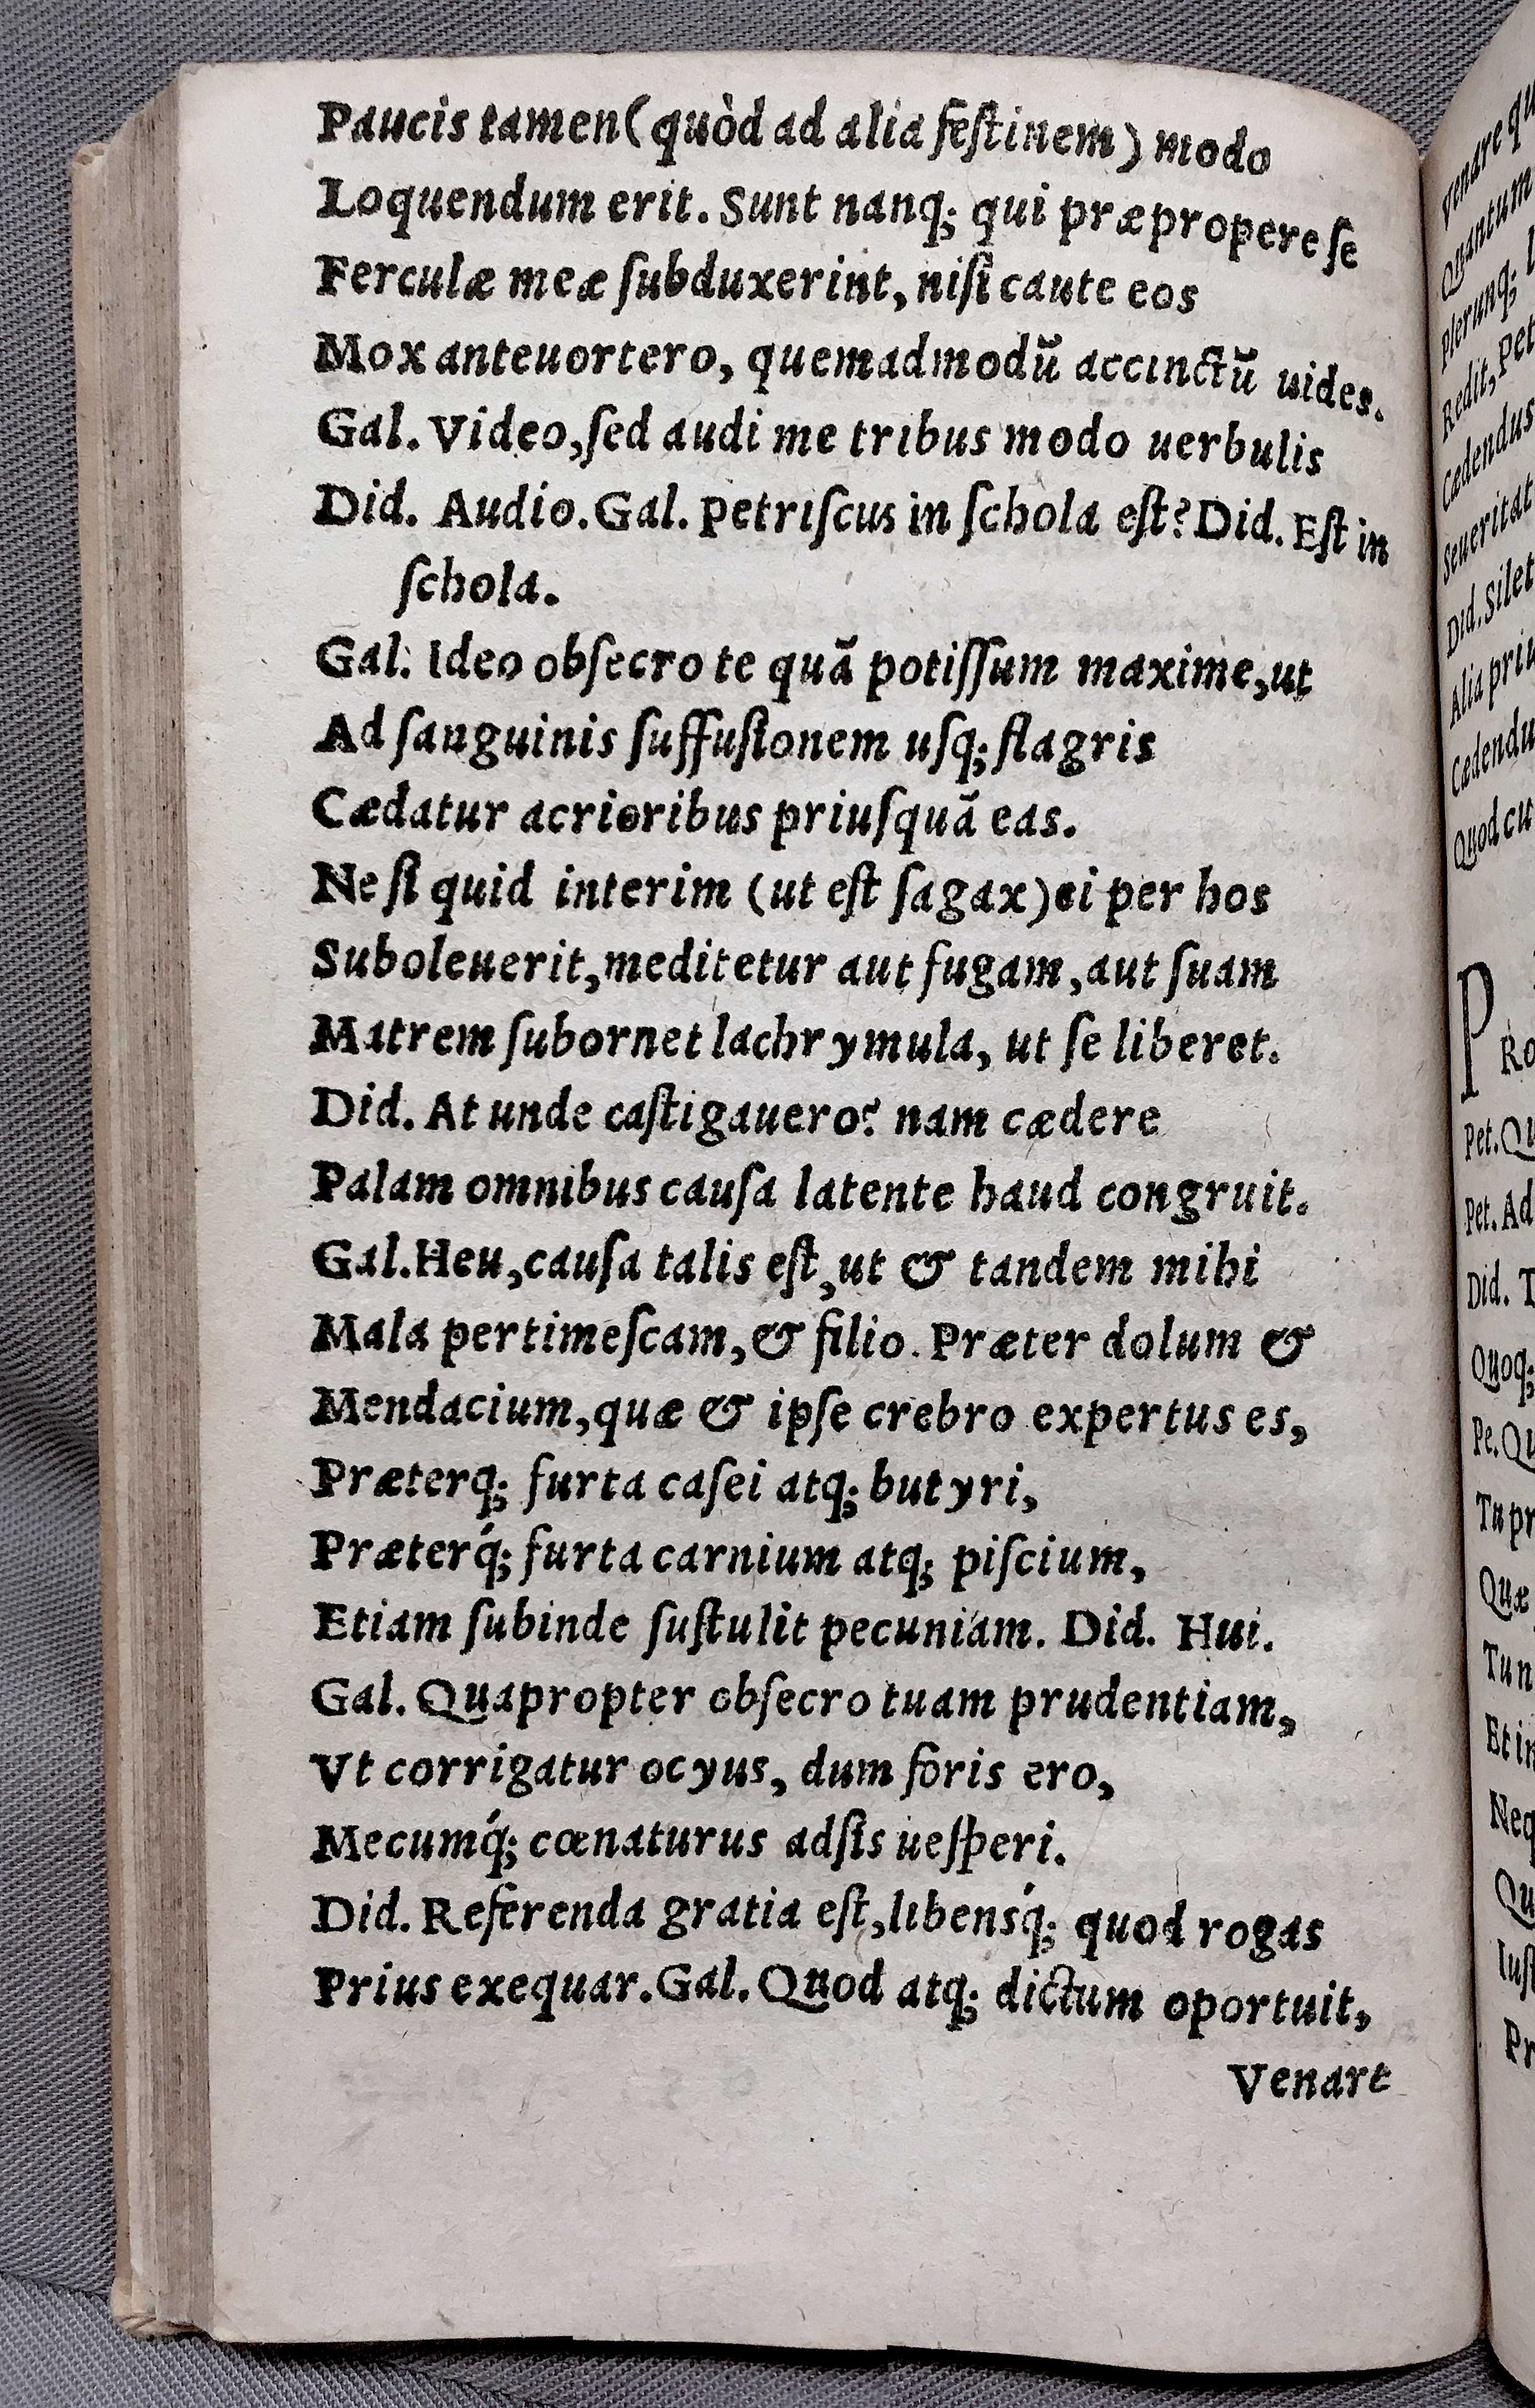 Paucis tamen (quòd ad alia feſtinem) modo
Loquendum erit. Sunt nanq; qui præpropere ſe
Ferculæ meæ ſubduxerint, niſi caute eos
Mox anteuortero, quemadmodũ accinctũ uides.
Gal. Video, ſed audi me tribus modo uerbulis
Did. Audio. Gal. Petriſcus in ſchola eſt? Did. Eſt in
ſchola.
Gal. Ideo obſecro te quã potiſſum maxime, ut
Ad ſanguinis ſuffuſionem uſq; flagris
Cædatur acrioribus priuſquã eas.
Ne ſi quid interim (ut eſt ſagax) ei per hos
Suboleuerit, meditetur aut fugam, aut ſuam
Matrem ſubornet lachrymula, ut ſe liberet.
Did. At unde caſtigauero? nam cædere
Palam omnibus cauſa latente haud congruit.
Gal. Heu, cauſa talis eſt, ut & tandem mihi
Mala pertimeſcam, & filio. Præter dolum &
Mendacium, quæ & ipſe crebro expertus es,
Præterq; furta caſei atq; butyri,
Præterq́; furta carnium atq; piſcium,
Etiam ſubinde ſuſtulit pecuniam. Did. Hui.
Gal. Quapropter obſecro tuam prudentiam,
Vt corrigatur ocyus, dum foris ero,
Mecumq́; cœnaturus adſis ueſperi.
Did. Referenda gratia eſt, libensq́; quod rogas
Prius exequar. Gal. Quod atq; dictum oportuit,
Venare
Venare
Quantum
Plerunq;
Redit, Pet
Cædendus
Seueritat
Did. Silet
Alia priu
Cædendu
Quod cu
P
Ro
Pet. Qu
Pet. Ad
Did. T
Quoq;
Pe. Qu
Tu pr
Quæ
Tu n
Et in
Neq
Qu
Iuſ
Pr